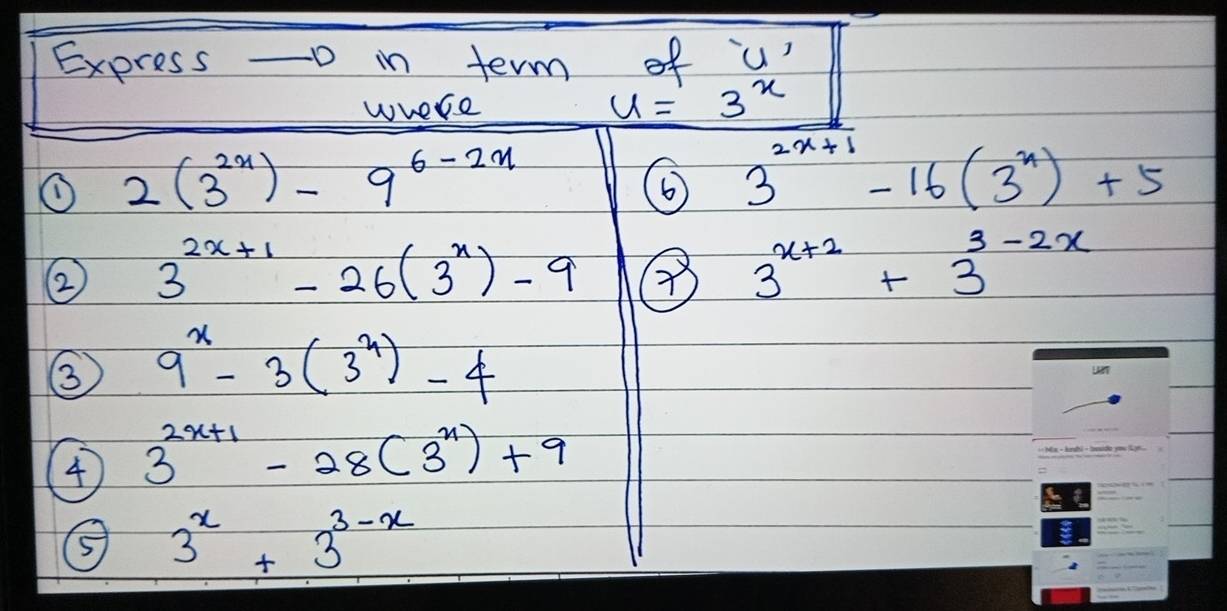 Express —D in term of 'u'
where u = 3^x
① 2(3^{2x}) - 9^{6-2x}
② 3^{2x+1} - 26(3^x) - 9
③ 9^x - 3(3^x) - 4
④ 3^{2x+1} - 28(3^x) + 9
⑤ 3^x + 3^{3-x}
⑥ 3^{2x+1} - 16(3^x) + 5
⑦ 3^{x+2} + 3^{3-2x}